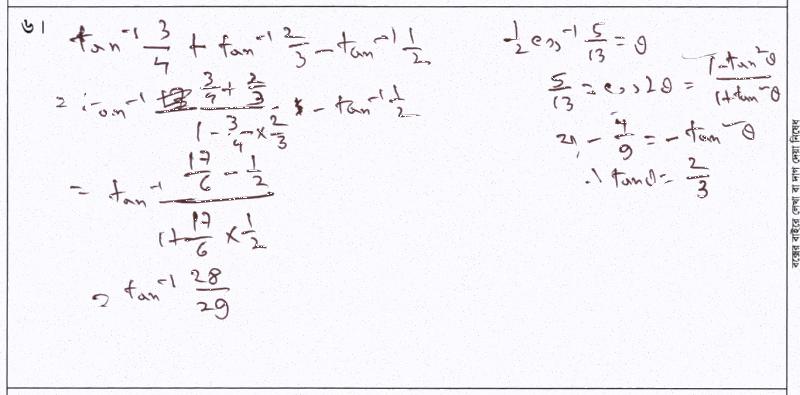 ৬।
tan⁻¹ 3/4 + tan⁻¹ 2/3 - tan⁻¹ 1/2
= tan⁻¹ (3/4 + 2/3)/(1 - 3/4 × 2/3) - tan⁻¹ 1/2
= tan⁻¹ (17/6 - 1/2)/(1 + 17/6 × 1/2)
= tan⁻¹ 28/29
1/2 cos⁻¹ 5/13 = θ
5/13 = cos 2θ = (1 - tan²θ)/(1 + tan²θ)
- 4/9 = - tan²θ
∴ tanθ = 2/3
বক্সের বাইরে লেখা বা দাগ দেয়া নিষেধ